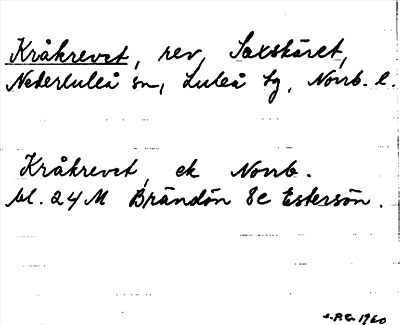 Kråkrevet, rev, Saxskäret,
Nederluleå sn, Luleå tg, Norrb. l.
Kråkrevet, ek Norrb.
bl. 24 M Brändön 8c Estersön.
J.P.G. 1960